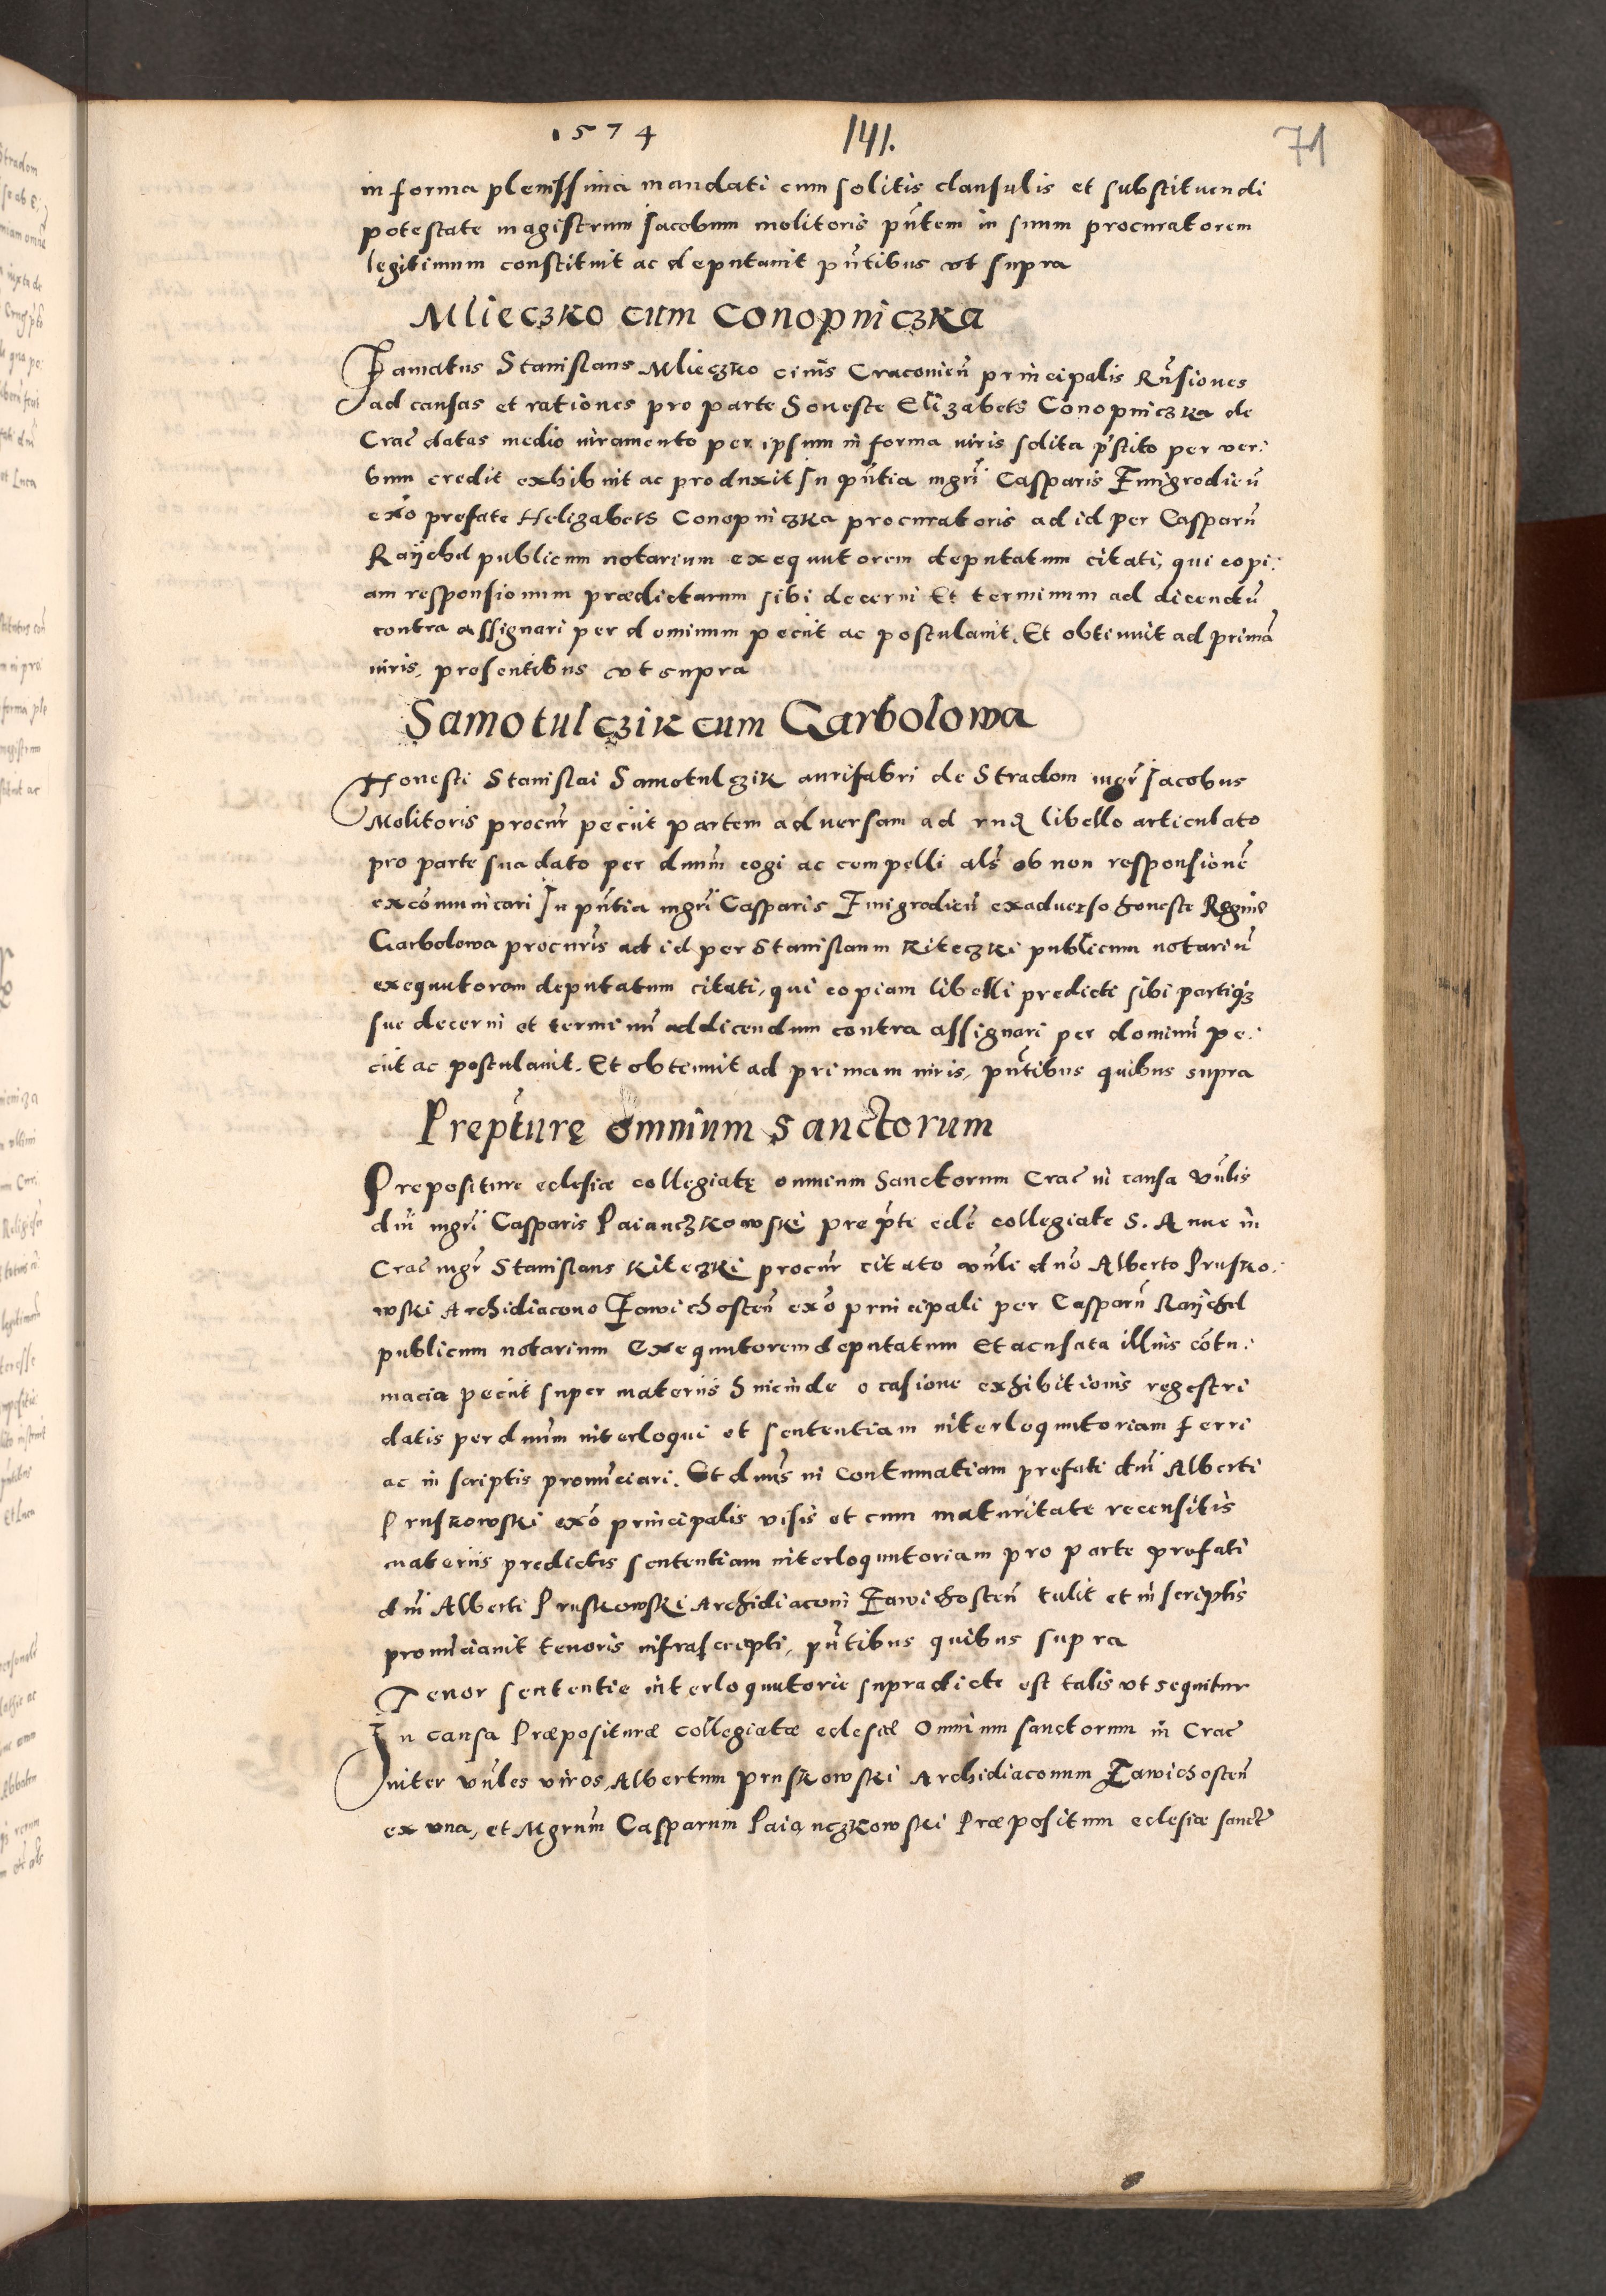 1574 141. 71
in forma plenissima mandati cum solitis clausulis et substituendi
potestate magistrum Jacobum molitoris pñtem in suum procuratorem
legitimum constituit ac deputauit pñtibus vt supra
Mlieczko cum Conopniczka
Famatus Stanislaus Mlieczko ciuis Cracovieñ principalis Rñsiones
ad causas et rationes pro parte honeste Elizabeth Conopniczka de
Crac datas medio iuramento per ipsum in forma iuris solita p̃stito per ver:
bum credit exhibuit ac produxit In pñtia mgrī Casparis Zmigrodieñ
exõ prefate Helizabeth Conopniczka procuratoris ad id per Casparũ
Raÿchel publicum notarium exequutorem deputatum citati, qui copi:
am responsionum prædictarum sibi decerni Et terminum ad dicendũ
contra assignari per dominum peciit ac postulauit. Et obtinuit ad primã
iuris, presentibus vt supra
Samotulczik cum Garbolowa
Honesti Stanislai Samotulczik aurifabri de Stradom mgr̃ Jacobus
Molitoris procur̃ peciit partem aduersam ad rnđ libello articulato
pro parte sua dato per dnum̃ cogi ac compelli als̃ ob non responsionẽ
excõmunicari In pñtia mgrī Casparis Zmigrodieñ exaduerso honeste Regine
Garbolowa procuris̃ ad id per Stanislaum Kiteczki publicum notariũ
exequutorem deputatum citati, qui copiam libelli predicti sibi partiqȝ
sue decerni et terminũ ad dicendum contra assignari per dominũ pe:
ciit ac postulauit. Et obtenuit ad primam iuris, pñtibus quibus supra
Prep̃turę omnium Sanctorum
Prepositure eclesiæ collegiatę omnium Sanctorum Crac in causa vñlis
dñi mgrī Casparis Paianczkowski prep̃ti eclẽ collegiate S. Anne in
Crac mgr̃ Stanislaus Kiteczki procur̃ citato vñli dnõ Alberto Prusko:
wski Archidiacono Zawichosteñ exõ principali per Casparũ Raÿchel
publicum notarium Exequutorem deputatum Et acusata illius cõtu:
macia peciit super materiis hincinde ocasione exhibitionis regestri
datis per dnum̃ interloqui et sententiam interloquutoriam ferri
ac in scriptis pronũciari. Et dnus̃ in contumatiam prefati dnĩ Alberti
Pruskowski exõ principalis visis et cum maturitate recensitis
materiis predictis sententiam interloquutoriam pro parte prefati
dnĩ Alberti Pruskowski Archidiaconi Zawichosteñ tulit et in scriptis
pronũciauit tenoris infrascripti, pñtibus quibus supra
Tenor sententie interloquutorie supradicte est talis vt sequitur
In causa Præposituræ collegiatæ eclesiæ Omnium sanctorum in Crac
inter vñles viros, Albertum Pruskowski Archidiaconum Zawichosteñ
ex vna, et Mgrum̃ Casparum Paianczkowski Præpositum eclesiæ sancte